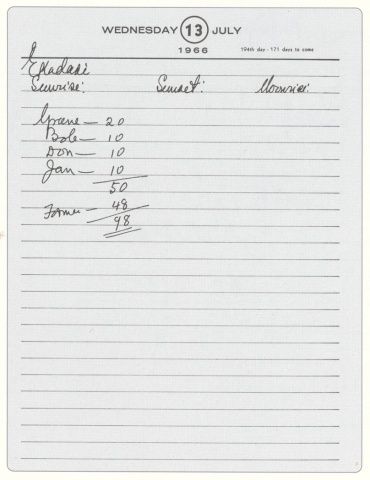 WEDNESDAY 13 JULY
1966
194th day - 171 days to come
Ekadasi
Sunrise: Sunset: Moonrise:
20
Bob — 10
Don — 10
Jan — 10
50
Former — 48
98